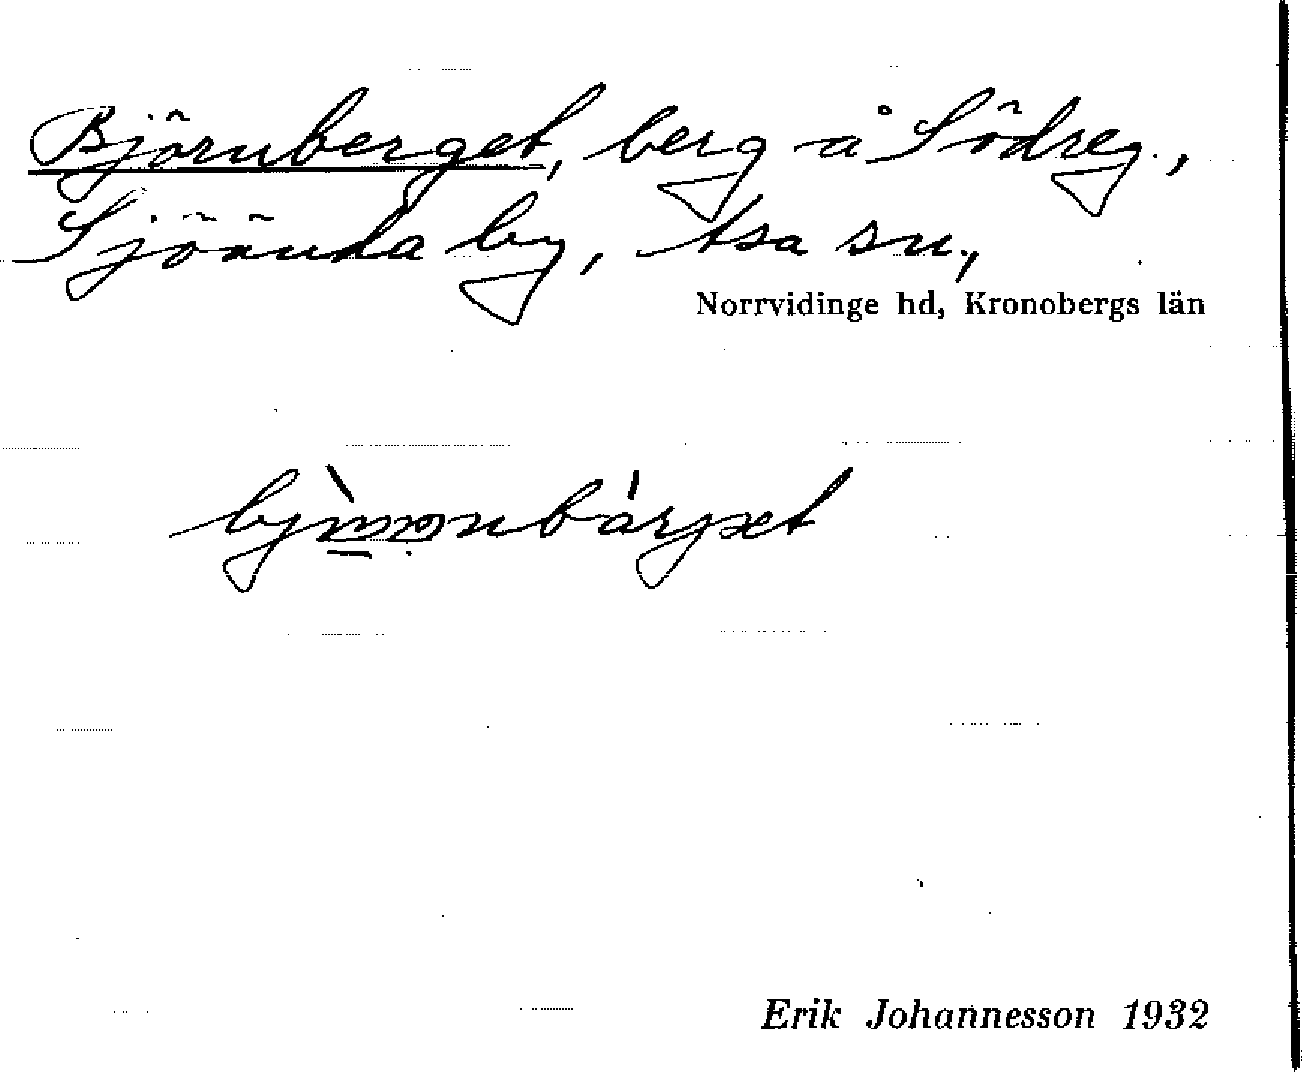 Björnberget, berg å Södreg.,
Sjöända by, Asa sn.,
Norrvidinge hd, Kronobergs län
Erik Johannesson 1932